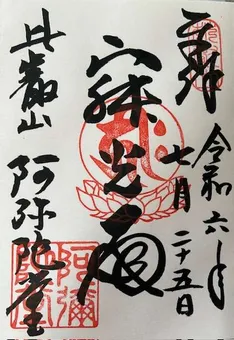 奉拝
令和六年
七月二十五日
寂光
比叡山 阿弥陀堂
阿彌陀堂